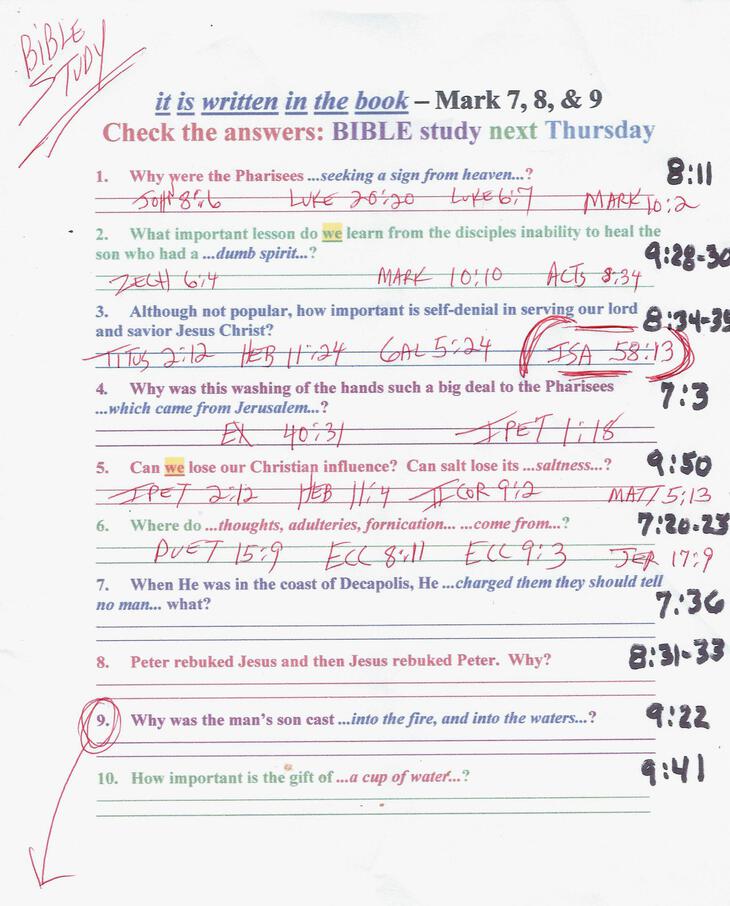 BIBLE
STUDY
it is written in the book – Mark 7, 8, & 9
Check the answers: BIBLE study next Thursday
1. Why were the Pharisees ...seeking a sign from heaven...? 8:11
JOHN 8:6 LUKE 20:20 LUKE 6:7 MARK 10:2
2. What important lesson do we learn from the disciples inability to heal the
son who had a ...dumb spirit...? 9:28-30
ZECH 6:4 MARK 10:10 ACTS 8:34
3. Although not popular, how important is self-denial in serving our lord
and savior Jesus Christ? 8:34-35
TITUS 2:12 HEB 11:24 GAL 5:24 ISA 58:13
4. Why was this washing of the hands such a big deal to the Pharisees
...which came from Jerusalem...? 7:3
EX 40:31 I PET 1:18
5. Can we lose our Christian influence? Can salt lose its ...saltness...? 9:50
I PET 2:12 HEB 11:4 II COR 9:2 MATT 5:13
6. Where do ...thoughts, adulteries, fornication... ...come from...? 7:20-23
DUET 15:9 ECC 8:11 ECC 9:3 JER 17:9
7. When He was in the coast of Decapolis, He ...charged them they should tell
no man... what? 7:36
8. Peter rebuked Jesus and then Jesus rebuked Peter. Why? 8:31-33
9. Why was the man's son cast ...into the fire, and into the waters...? 9:22
10. How important is the gift of ...a cup of water...? 9:41